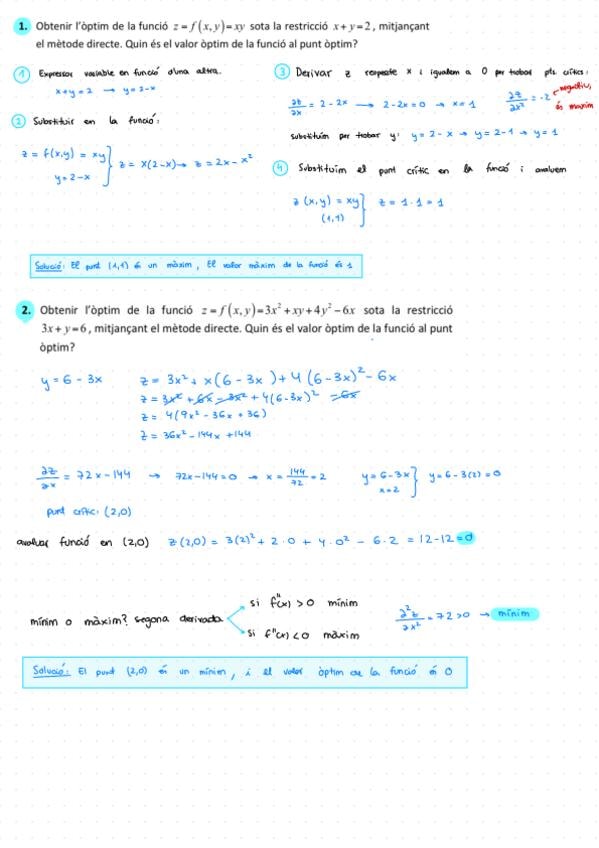 1. Obtenir l'òptim de la funció z = f(x, y) = xy sota la restricció x + y = 2, mitjançant
el mètode directe. Quin és el valor òptim de la funció al punt òptim?
① Expressar variable en funció d'una altra.
x+y=2 → y=2-x
② Substituir en la funció:
z = f(x,y) = xy
y=2-x } z = x(2-x) → z = 2x - x²
③ Derivar z respecte x i igualem a 0 per trobar pts. crítics:
∂z/∂x = 2 - 2x → 2-2x=0 → x=1 ∂z/∂x² = -2 negatiu, és màxim
substituïm per trobar y: y = 2-x → y = 2-1 → y=1
④ Substituïm el punt crític en la funció i avaluem
z(x,y) = xy
(1,1) } z = 1·1 = 1
Solució: El punt (1,1) és un màxim, El valor màxim de la funció és 1
2. Obtenir l'òptim de la funció z = f(x, y) = 3x² + xy + 4y² − 6x sota la restricció
3x + y = 6, mitjançant el mètode directe. Quin és el valor òptim de la funció al punt
òptim?
y = 6 - 3x
z = 3x² + x(6-3x) + 4(6-3x)² - 6x
z = 3x² + 6x - 3x² + 4(6-3x)² - 6x
z = 4(9x² - 36x + 36)
z = 36x² - 144x + 144
∂z/∂x = 72x - 144 → 72x-144=0 → x = 144/72 = 2
y=6-3x
x=2 } y=6-3(2)=0
punt crític: (2,0)
avaluar funció en (2,0) z(2,0) = 3(2)² + 2·0 + 4·0² - 6·2 = 12-12 = 0
mínim o màxim? segona derivada
si f''(x) > 0 mínim
si f''(x) < 0 màxim
∂²z/∂x² = 72 > 0 → mínim
Solució: El punt (2,0) és un mínim, i el valor òptim de la funció és 0